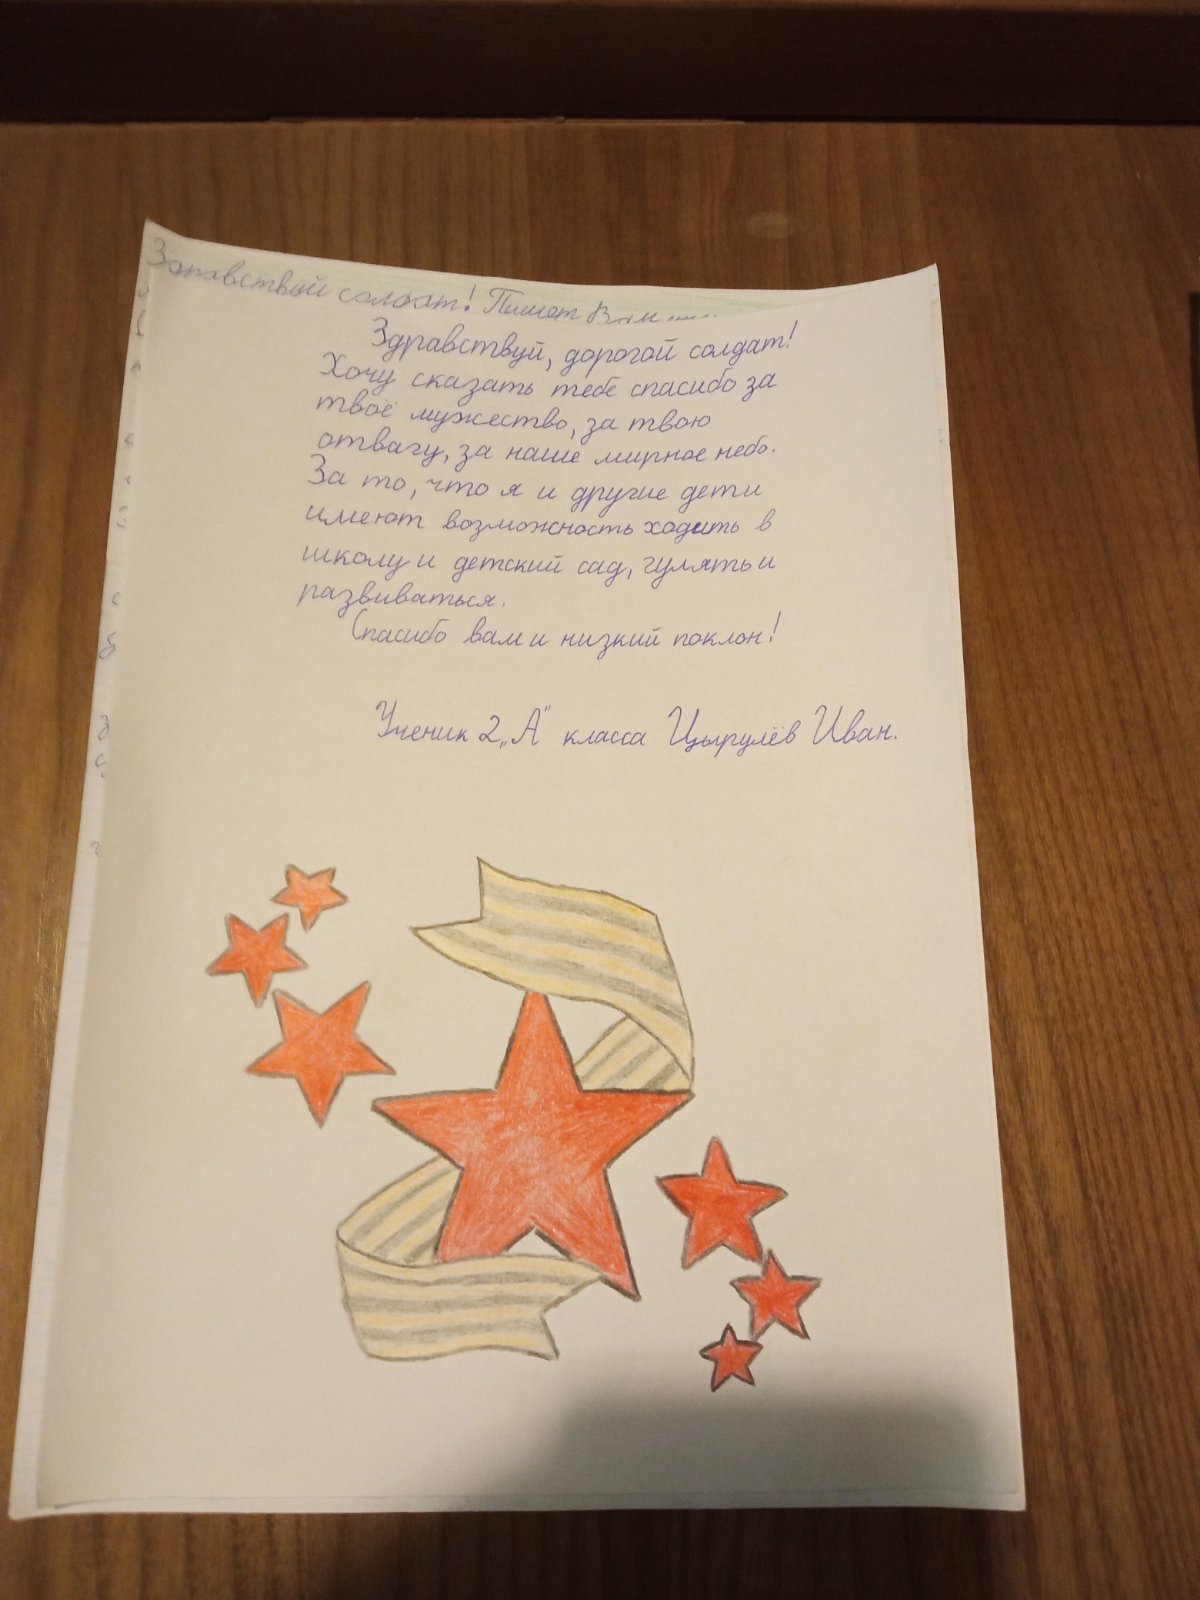 Здравствуй солдат! Пишет Вам
Здравствуй, дорогой солдат!
Хочу сказать тебе спасибо за
твоё мужество, за твою
отвагу, за наше мирное небо.
За то, что я и другие дети
имеют возможность ходить в
школу и детский сад, гулять и
развиваться.
Спасибо вам и низкий поклон!
Ученик 2 „А" класса Цырулёв Иван.